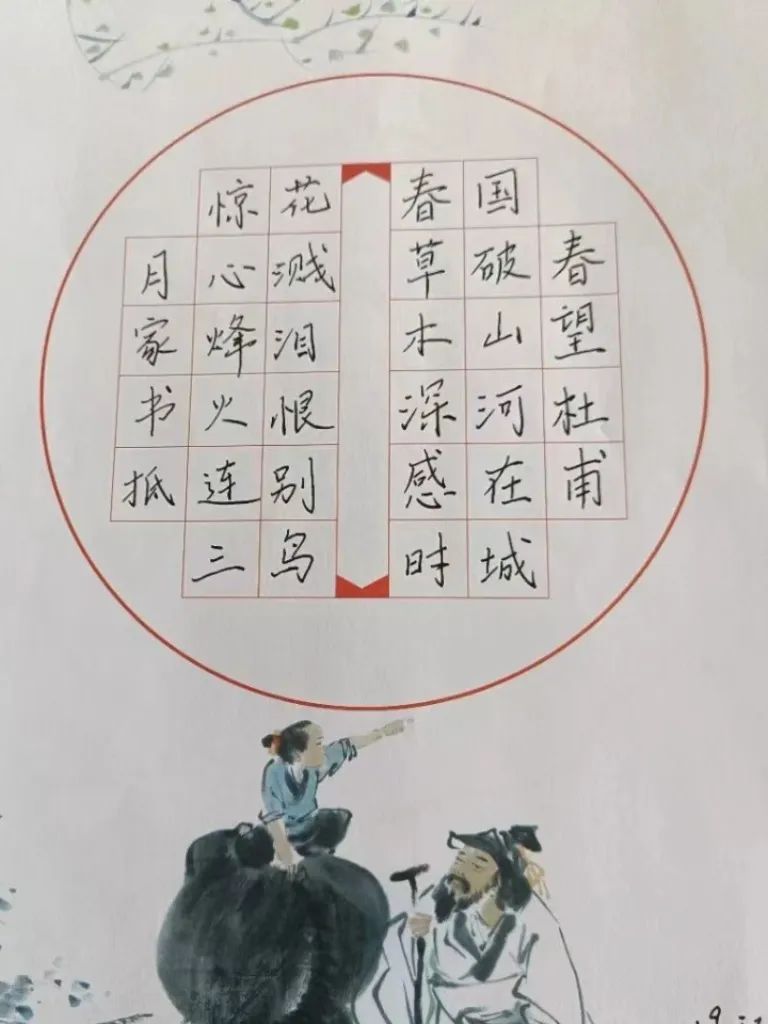 春望杜甫
国破山河在城
春草木深感时
花溅泪恨别鸟
惊心烽火连三
月家书抵